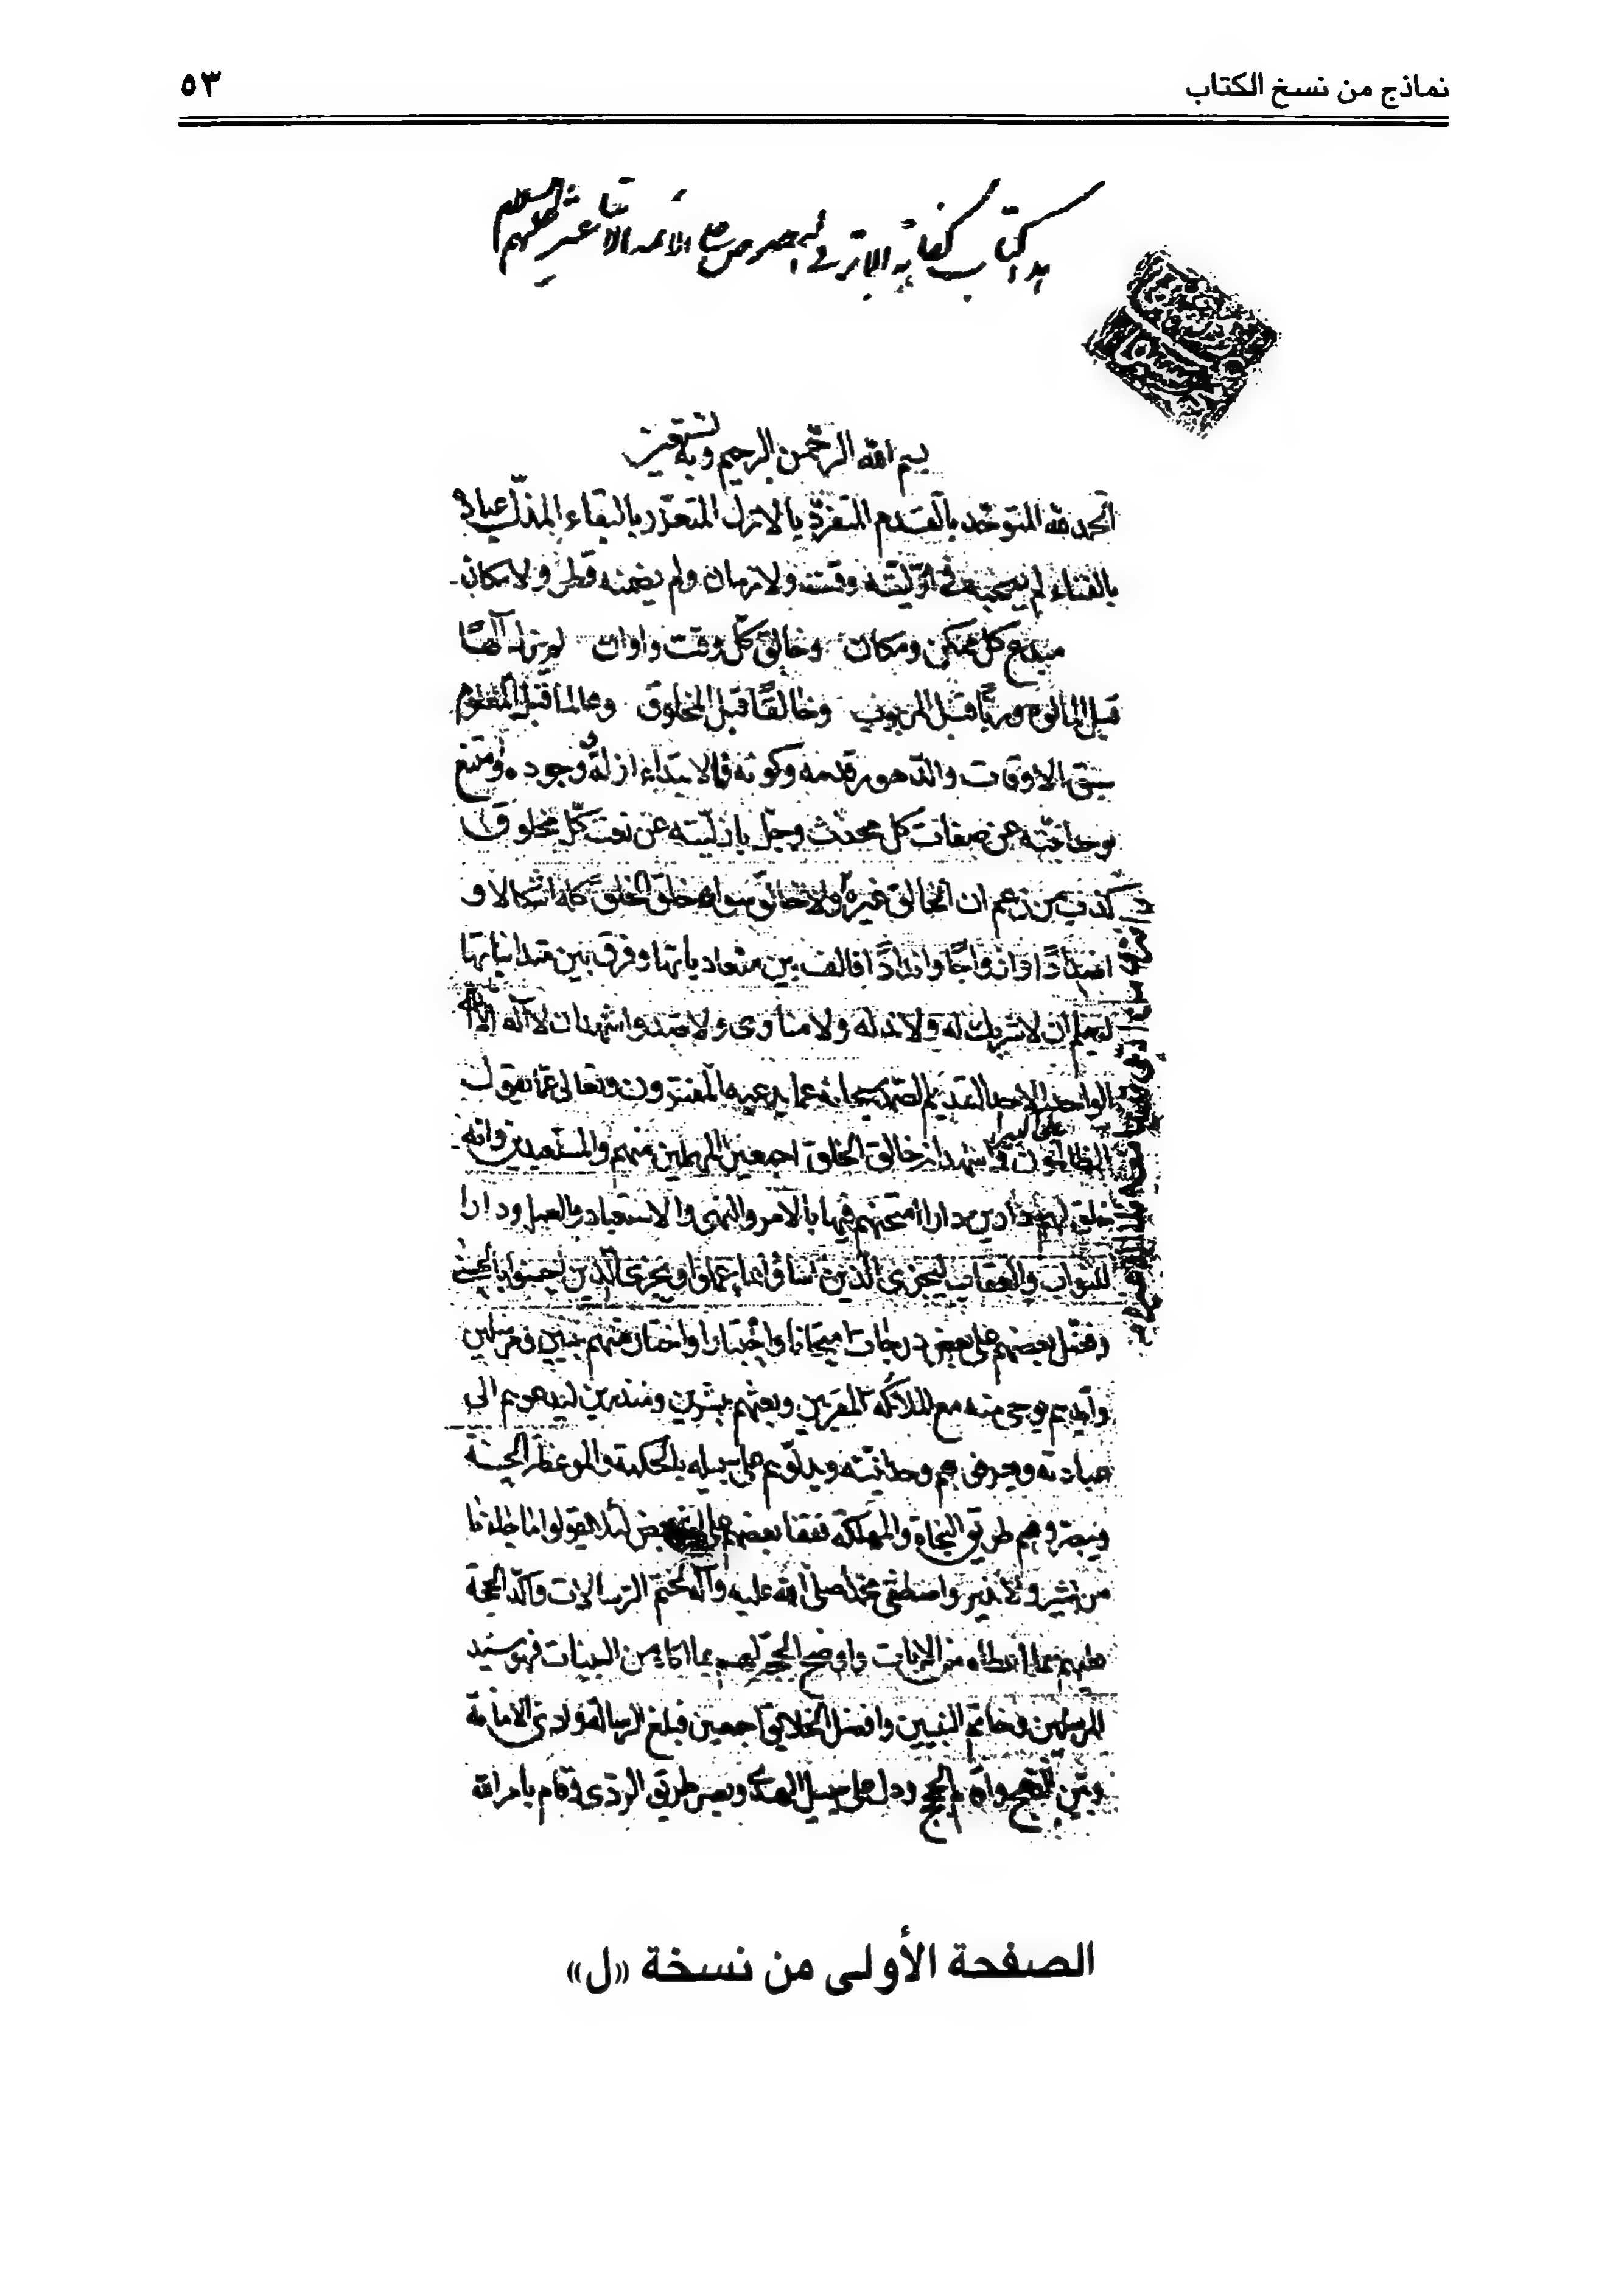 نماذج من نسخ الكتاب
٥٣
هذا كتاب كفاية الاثر في النصوص على الائمة الاثنا عشر عليهم السلام
بسم الله الرحمن الرحيم وبه نستعين
الحمد لله المتوحد بالقدم المتفرد بالازل المتعزز بالبقاء المذل عباده
بالفناء لم يصحبه في ازليته وقت ولا زمان ولم يضمنه قطر ولا مكان
مبدع كل متمكن ومكان وخالق كل وقت واوان لم يزل الها
قبل المالوه وربا قبل المربوب وخالقا قبل المخلوق وعالما قبل المعلوم
سبق الاوقات والدهور قدمه وكونه والابتداء ازله وجوده وامتنع
بوحدانيته عن صفات كل محدث وجل بازليته عن نعت كل مخلوق
كذب من زعم ان الخالق غيره ولا خالق سواه خلق الخلق كله اشكالا و
اضدادا وازواجا واندادا فالف بين متعادياتها وفرق بين متدانياتها
ليعلم ان لا شريك له ولا ند له ولا مناوى ولا ضد واشهد ان لا اله الا الله
الواحد الاحد القديم الصمد سبحانه عما يدعيه المفترون وتعالى عما يقول
الظالمون علوا كبيرا واشهد انه خالق الخلق اجمعين المهملين منهم والمستعبدين وانه
خلق لهم دارين دارا امتحنهم فيها بالامر والنهى والاستعباد بالعمل ودارا
للثواب والعقاب ليجزى الذين اساؤا بما عملوا ويجزى الذين احسنوا بالحسنى
وفضل بعضهم على بعض درجات امتحانا واختبارا واختار منهم نبيين ومرسلين
وايدهم بوحى منه مع الملائكة المقربين وبعثهم مبشرين ومنذرين ليدعوهم الى
عبادته ويعرفى هم وحدانيته ويدلوهم على سبيله بالحكمة والموعظة الحسنة
ويبصروهم طريق النجاة والمهلكة بعضهم على بعض لئلا يقولوا ما جاءنا
من بشير ولا نذير واصطفى محمدا صلى الله عليه وآله لختم الرسالات واكد الحجة
عليهم بما اعطاه من الايات واوضح الحجج لهم بما اتاه من البينات فهو سيد
المرسلين وخاتم النبيين وافضل الخلائق اجمعين فبلغ الرسالة وادى الامانة
وبين النهج واقام الحجج ودل على سبيل الهدى وبصر طريق الردى وقام بامر الله
الصفحة الأولى من نسخة «ل»